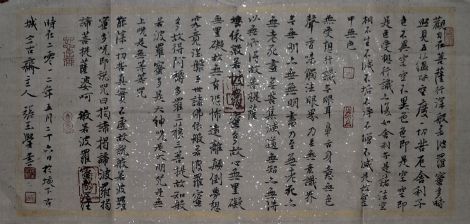 觀自在菩薩行深般若波羅蜜多時
照見五蘊皆空度一切苦厄舍利子
色不異空空不異色色即是空空即
是色受想行識亦復如是舍利子是諸法空
相不生不滅不垢不淨不增不減是故空
中無色
無受想行識無眼耳鼻舌身意無色
聲香味觸法無眼界乃至無意識界
無無明亦無無明盡乃至無老死亦
無老死盡無苦集滅道無智亦無得
以無所得故菩提薩
埵依般若波羅蜜多故心無罣礙
無罣礙故無有恐怖遠離顛倒夢想
究竟涅槃三世諸佛依般若波羅蜜
多故得阿耨多羅三藐三菩提故知般
若波羅蜜多是大神咒是大明咒是無
上咒是無等等咒
能除一切苦真實不虛故說般若波羅
蜜多咒即說咒曰揭諦揭諦波羅揭
諦菩提薩婆呵 般若波羅蜜多心經
時在二零一二年五月二十六日於城子古
城子古齋主人 張玉學書